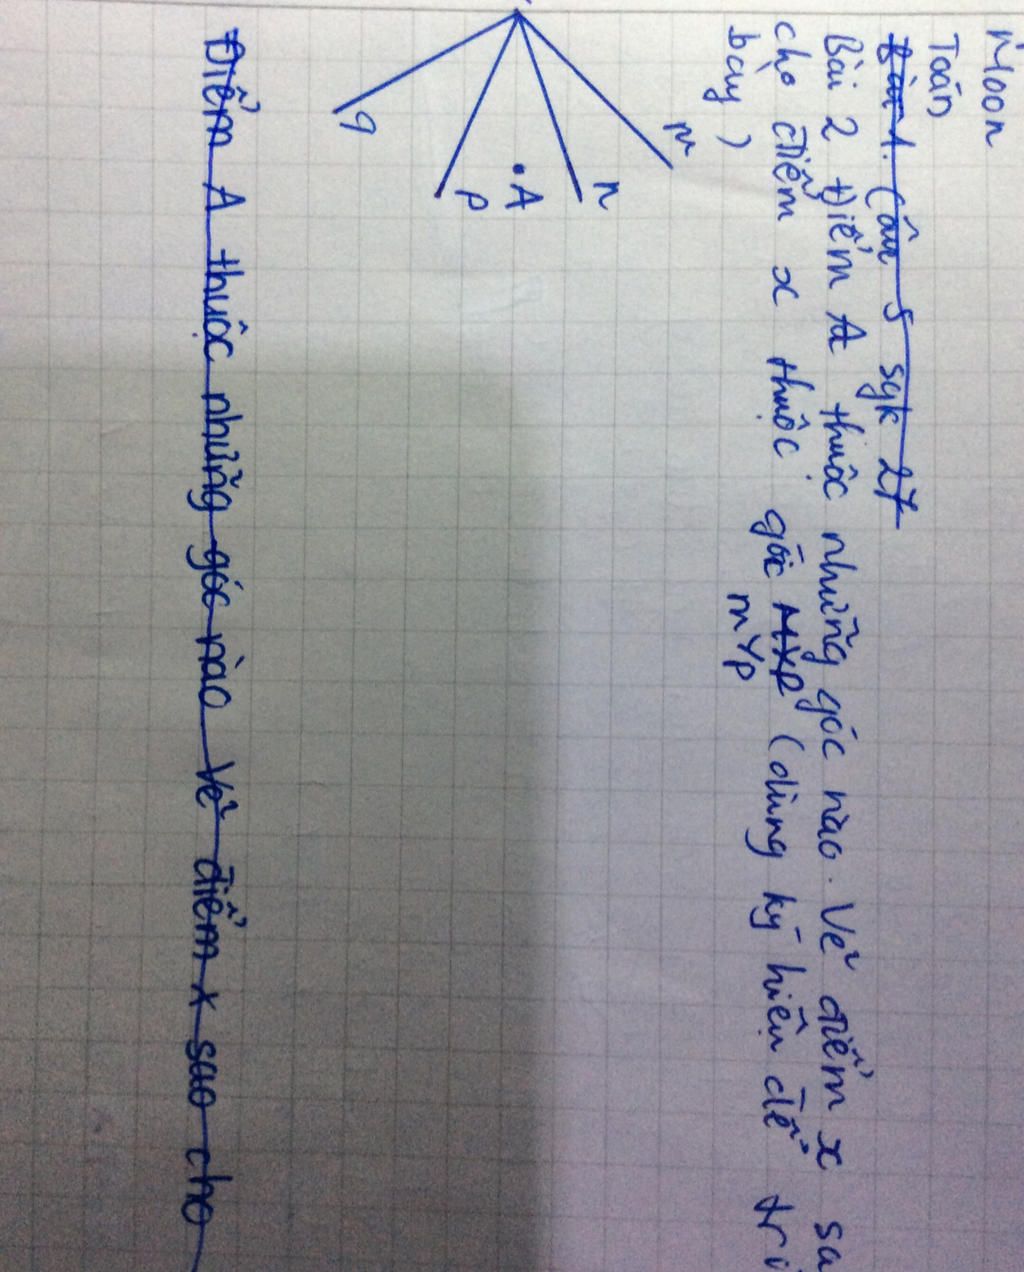 Moon
Toán
Bài 1. Câu 5 sgk 27
Bài 2 Điểm A thuộc những góc nào. Vẽ điểm x sa
cho điểm x thuộc góc MXP (dùng ký hiệu để trì
bay) mYp
m
n
A
p
q
Điểm A thuộc những góc nào Vẽ điểm x sao cho